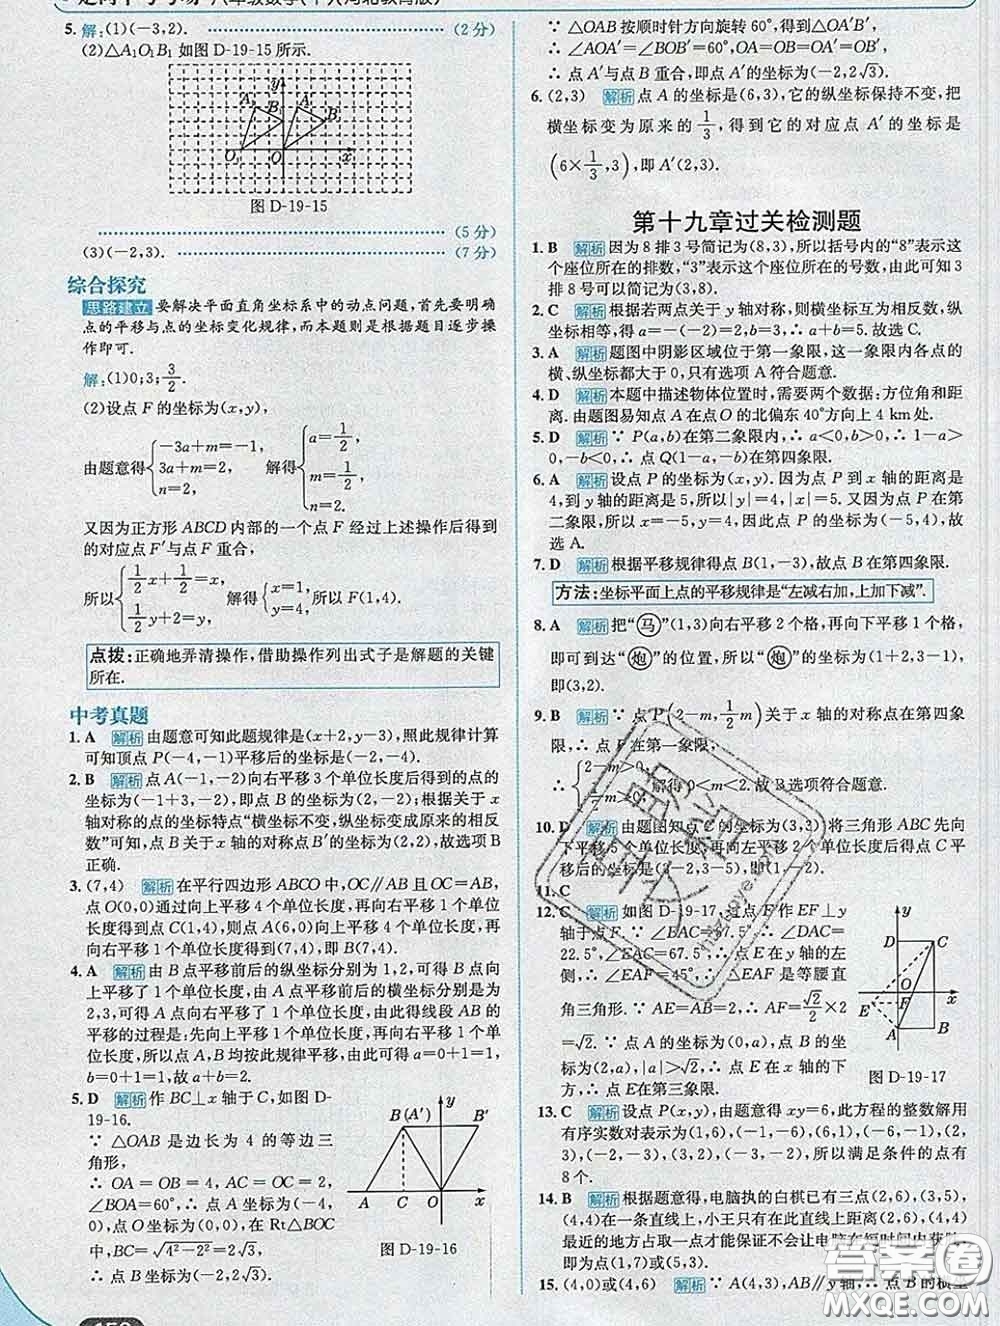 5. 解:(1)(-3,2). (2分)
(2)△A₁O₁B₁ 如图 D-19-15 所示.
y
A₁ A B₁ B
O₁ O x
图 D-19-15
(5分)
(3)(-2,3). (7分)
综合探究
思路建立 要解决平面直角坐标系中的动点问题,首先要明确
点的平移与点的坐标变化规律,而本题则是根据题目逐步操
作即可.
解:(1)0;3;3/2.
(2)设点 F 的坐标为(x,y),
由题意得{-3a+m=-1, 3a+m=2, n=2, 解得{a=1/2, m=1/2, n=2.
又因为正方形 ABCD 内部的一个点 F 经过上述操作后得到
的对应点 F′与点 F 重合,
所以{1/2x+1/2=x, 1/2y+2=y, 解得{x=1, y=4, 所以 F(1,4).
点拨:正确地弄清操作,借助操作列出式子是解题的关键
所在.
中考真题
1. A 解析 由题意可知此题规律是(x+2,y-3),照此规律计算
可知顶点 P(-4,-1)平移后的坐标是(-2,-4).
2. B 解析 点 A(-1,-2)向右平移 3 个单位长度后得到的点的
坐标为(-1+3,-2),即点 B 的坐标为(2,-2);根据关于 x
轴对称的点的坐标特点“横坐标不变,纵坐标变成原来的相反
数”可知,点 B 关于 x 轴的对称点 B′的坐标为(2,2),故选项 B
正确.
3. (7,4) 解析 在平行四边形 ABCO 中,OC∥AB 且 OC=AB,
点 O(0,0)通过向上平移 4 个单位长度,再向右平移 1 个单位
长度得到点 C(1,4),则点 A(6,0)向上平移 4 个单位长度,再
向右平移 1 个单位长度得到(7,4),即 B(7,4).
4. A 解析 由 B 点平移前后的纵坐标分别为 1,2,可得向上
平移 1 个单位长度,由 A 点平移前后的横坐标分别是为
2,3,可得向右平移了 1 个单位长度,由此得线段 AB 的平
移的过程是:先向上平移 1 个单位长度,再向右平移 1 个单位
长度,所以点 A,B 均按此规律平移,由此可得 a=0+1=1,
b=0+1=1,故 a+b=2.
5. D 解析 作 BC⊥x 轴于 C,如图 D-
19-16.
∵ △OAB 是边长为 4 的等边三
角形,
∴ OA = OB = 4, AC = OC = 2,
∠BOA=60°,∴ 点 A 坐标为(-4,
0),点 O 坐标为(0,0),在 Rt△BOC
中,BC=√(4²-2²)=2√3,
∴ 点 B 坐标为(-2,2√3).
B(A′) B′ y
A C O x
图 D-19-16
∵ △OAB 按顺时针方向旋转 60°,得到△OA′B′,
∴ ∠AOA′=∠BOB′=60°,OA=OB=OA′=OB′,
∴ 点 A′与点 B 重合,即点 A′的坐标为(-2,2√3).
6. (2,3) 解析 点 A 的坐标是(6,3),它的纵坐标保持不变,把
横坐标变为原来的1/3,得到它的对应点 A′的坐标是
(6×1/3,3),即 A′(2,3).
第十九章过关检测题
1. B 解析 因为 8 排 3 号简记为(8,3),所以括号内的“8”表示这
个座位所在的排数,“3”表示这个座位所在的号数,由此可知 3
排 8 号可以简记为(3,8).
2. C 解析 根据若两点关于 y 轴对称,则横坐标互为相反数,纵
坐标相等,得 a=-(-2)=2,b=3,∴ a+b=5.故选 C.
3. A 解析 题图中阴影区域位于第一象限,这一区域内各点的
横、纵坐标都大于 0,只有选项 A 符合题意.
4. D 解析 本题中描述物体位置时,需要两个数据:方位角和距
离.由题图易知点 A 在点 O 的北偏东 40°方向上 4 km处.
5. D 解析 ∵ P(a,b)在第二象限内,∴ a<0,b>0,∴ 1-a>
0,-b<0,∴ 点 Q(1-a,-b)在第四象限.
6. A 解析 设点 P 的坐标为(x,y).因为点 P 到 x 轴的距离是
4,到 y 轴的距离是 5,所以|y|=4,|x|=5.又因为点 P 在第
二象限,所以 x=-5,y=4,因此点 P 的坐标为(-5,4),故
选 A.
7. D 解析 根据平移规律得点 B(1,-3),故点 B 在第四象限.
方法:坐标平面上点的平移规律是“左减右加,上加下减”.
8. A 解析 把“马”(1,3)向右平移 2 个格,再向下平移 1 个格,
即可到达“炮”的位置,所以“炮”的坐标为(1+2,3-1),
即(3,2).
9. B 解析 ∵ 点 P(2-m,1/2m)关于 x 轴的对称点在第四象
限,∴ 点 P 在第一象限,
∴ {2-m>0, 1/2m>0, 解得 0<m<2.故 B 选项符合题意.
10. D 解析 由题图知点 C 的坐标为(3,3),将三角形 ABC 先向
下平移 5 个单位长度,再向左平移 2 个单位长度后得点 C 平
移后的坐标是(3-2,3-5),即(1,-2).
11. C
12. C 解析 如图 D-19-17,过点 F 作 EF⊥y
轴于点 F.∵ ∠BAC=67.5°,∴ ∠DAC=
22.5°,∠EAC=67.5°,点 E 在 y 轴的左
侧,∴ ∠EAF=45°,∴ △EAF 是等腰直
角三角形.∵ EA=2,∴ EF=AF=√2/2×2
=√2.∵ 点 A 的坐标为(0,a),点 B 的坐标
为(2,a),|a|>√2,∴ 点 E 在 x 轴的下
方,∴ 点 E 在第三象限.
y D C O x E F A B
图 D-19-17
13. C 解析 设点 P(x,y),由题意得 xy=6,此方程的整数解用
有序实数对表示为(1,6),(-1,-6),(6,1),(-6,-1),(2,
3),(-2,-3),(3,2),(-3,-2),所以满足条件的点有
8 个.
14. B 解析 根据题意得,电脑执的白棋已有三点(2,6),(3,5),
(4,4)在一条直线上,小王只有在距离(2,6),(4,4)
最近的地方占取一点才能保证不会让电脑在短时间内获胜,
即为点(1,7)或(5,3).
15. (4,0)或(4,6) 解析 ∵ A(4,3),AB∥y 轴,∴ 点 B 的横坐
答案圈
MXQE.COM